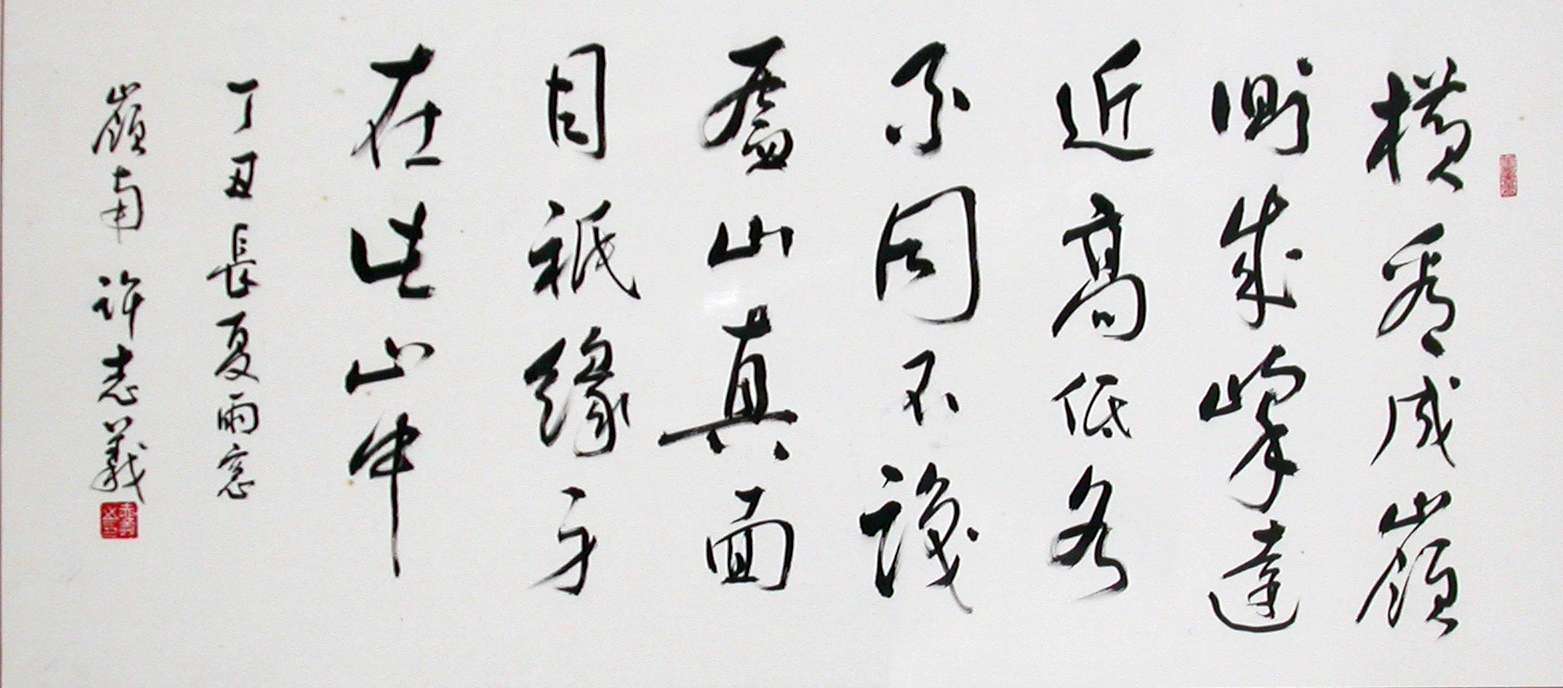 橫看成嶺
側成峯遠
近高低各
不同不識
廬山真面
目祇緣身
在此山中
丁丑長夏雨窓
嶺南許志義